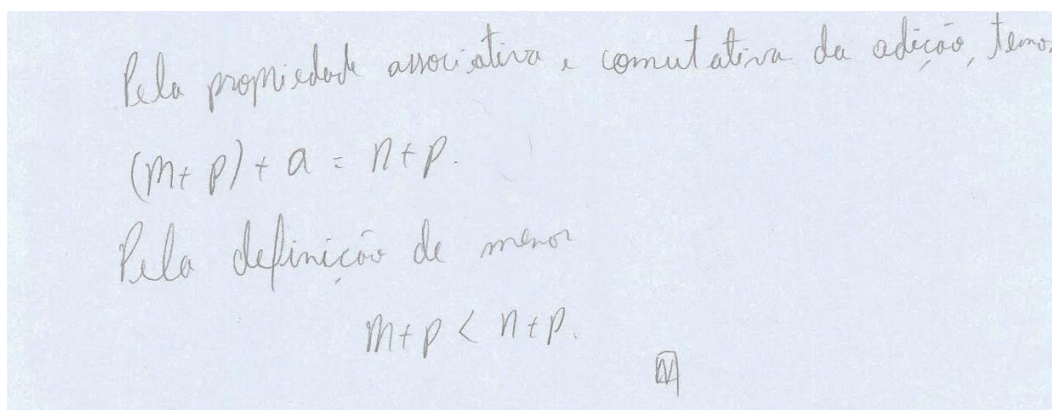 Pela propriedade associativa e comutativa da adição, temos
(m+p)+a = n+p.
Pela definição de menor
m+p < n+p.